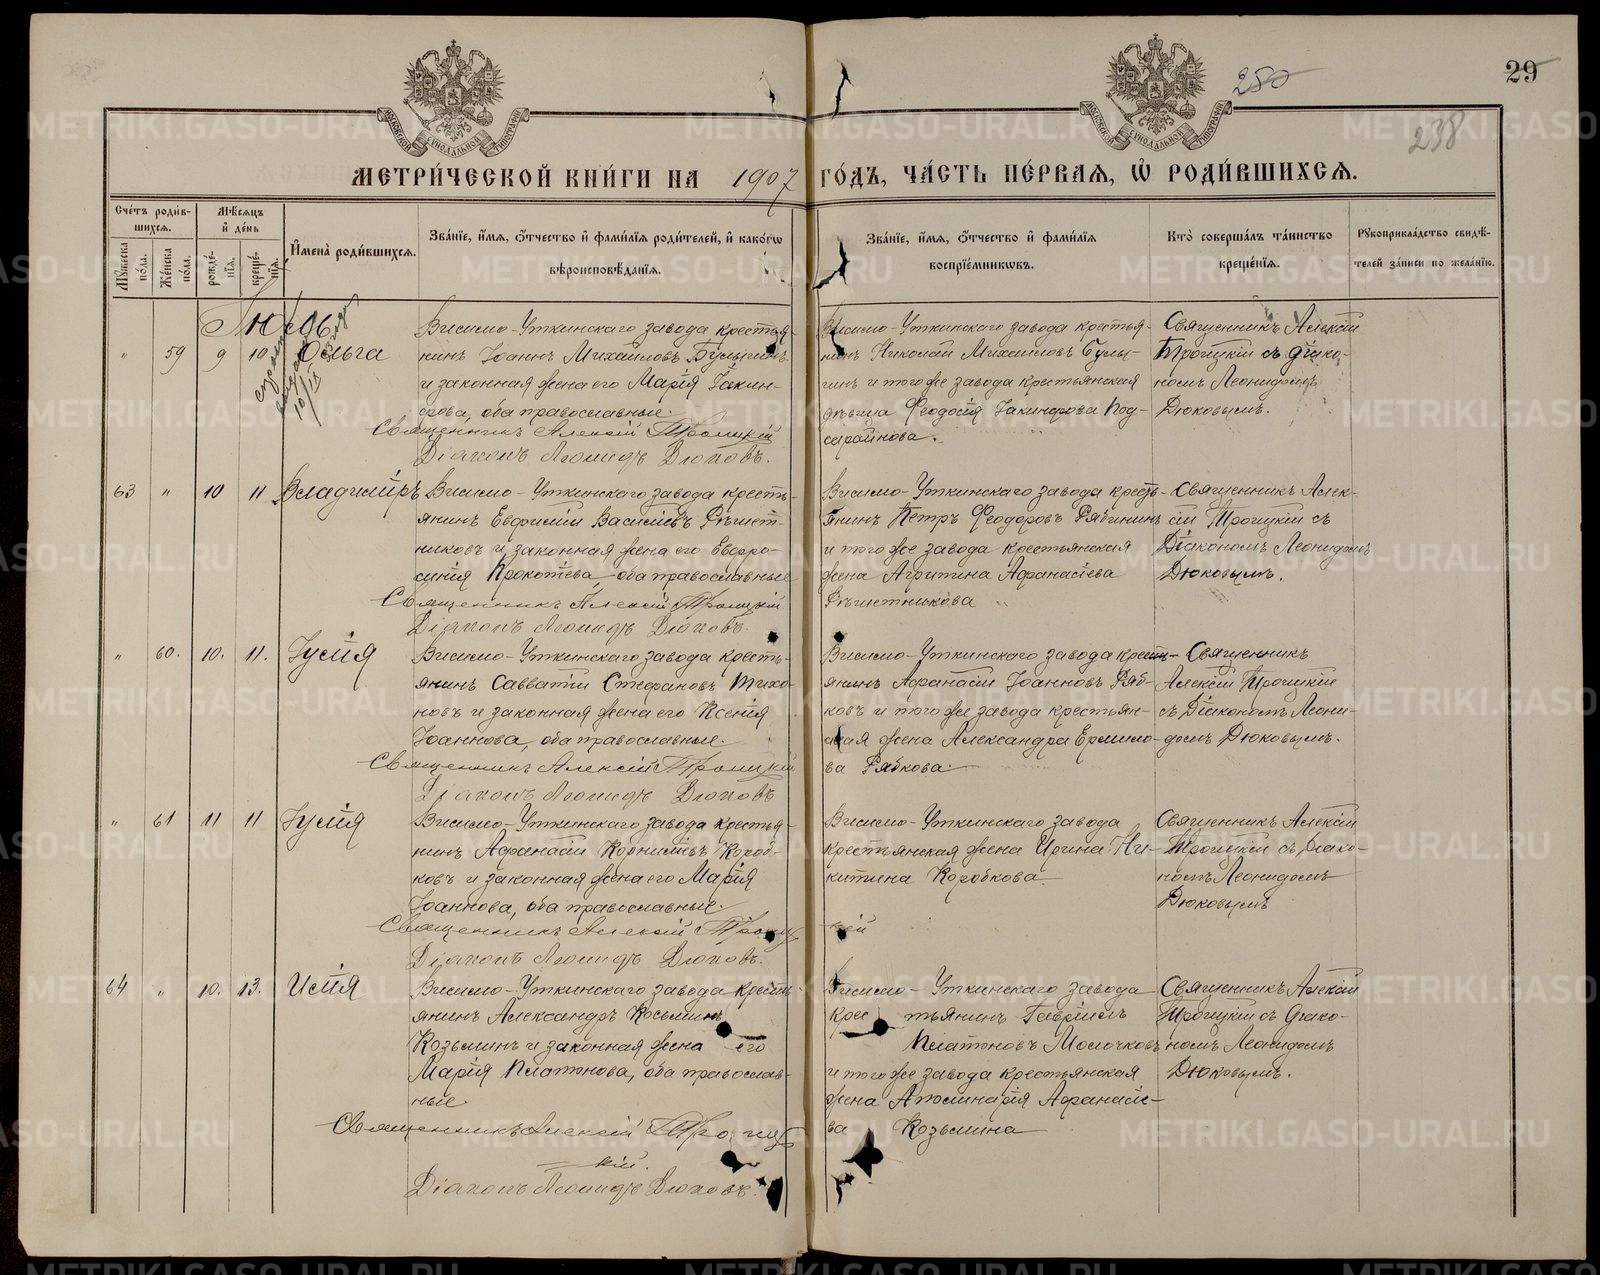 250
29
238
МОСКОВСКОЙ СѴНОДАЛЬНОЙ ТИПОГРАФІИ
МОСКОВСКОЙ СѴНОДАЛЬНОЙ ТИПОГРАФІИ
МЕТРИ́ЧЕСКОЙ КНИ́ГИ НА 1907 ГО́ДЪ, ЧА́СТЬ ПЕ́РВАЯ, Ѡ҆ РОДИ́ВШИХСЯ.
Сче́тъ роди́в-
шихся.
Мꙋ́жеска по́ла.
Же́нска по́ла.
Мѣ́сяцъ
и҆ де́нь
рожде́-
нїѧ.
креще́-
нїѧ.
И҆мена̀ роди́вшихся.
Зва́нїе, и҆́мѧ, ѻ҆́тчество и҆ фамѝлїѧ роди́телей, и҆ како́гѡ
вѣроисповѣ́данїѧ.
Зва́нїе, и҆́мѧ, ѻ҆́тчество и҆ фамѝлїѧ
воспрїе́мникѡвъ.
Кто̀ соверша́лъ та́инство
креще́нїѧ.
Рꙋкоприкла́дство свидѣ́-
телей за́писи по жела́нїю.
Іюль.
" 59 9 10 Ольга
10/IX
Висимо-Уткинскаго завода крестья-
нинъ Іоаннъ Михайловъ Булыгинъ
и законная жена его Марія Іакин-
фова, оба православные.
Священникъ Алексій Троицкій
Діаконъ Леонидъ Дюковъ.
Висимо-Уткинскаго завода крестья-
нинъ Николай Михаиловъ Булы-
гинъ и того же завода крестьянская
дѣвица Феодосія Іакинфова Под-
сарайнова.
Священникъ Алексій
Троицкій съ діако-
номъ Леонидомъ
Дюковымъ.
63 " 10 11 Владиміръ
Висимо-Уткинскаго завода кресть-
янинъ Евфимій Василіевъ Рѣшет-
никовъ и законная жена его Евфро-
синія Прокопіева, оба православные
Священникъ Алексій Троицкій
Діаконъ Леонидъ Дюковъ.
Висимо-Уткинскаго завода кресть-
янинъ Петръ Феодоровъ Рябининъ
и того же завода крестьянская
жена Агрипина Афанасіева
Рѣшетникова
Священникъ Алек-
сій Троицкій съ
Діакономъ Леонидомъ
Дюковымъ.
" 60. 10. 11. Іулія
Висимо-Уткинскаго завода кресть-
янинъ Савватій Стефановъ Тихо-
новъ и законная жена его Ксенія
Іоаннова, оба православные.
Священникъ Алексій Троицкій
Діаконъ Леонидъ Дюковъ
Висимо-Уткинскаго завода кресть-
янинъ Афанасій Іоанновъ Ряб-
ковъ и того же завода крестьян-
ская жена Александра Ермило-
ва Рябкова.
Священникъ
Алексій Троицкій
съ Діакономъ Леони-
домъ Дюковымъ.
" 61 11 11 Іулія
Висимо-Уткинскаго завода крестья-
нинъ Афанасій Корниліевъ Короб-
ковъ и законная жена его Марія
Іоаннова, оба православные.
Священникъ Алексій Троиц
кій
Діаконъ Леонидъ Дюковъ.
Висимо-Уткинскаго завода
крестьянская жена Ирина Ни-
китина Коробкова.
Священникъ Алексій
Троицкій съ Діако-
номъ Леонидомъ
Дюковымъ
64 " 10. 13. Илія
Висимо-Уткинскаго завода кресть-
янинъ Александръ Косьминъ
Козьминъ и законная жена его
Марія Платонова, оба православ-
ные.
Священникъ Алексій Троиц
кій.
Діаконъ Леонидъ Дюковъ.
Висимо-Уткинскаго завода
крестьянинъ Гавріилъ
Платоновъ Молочковъ
и того же завода крестьянская
жена Аполинарія Афанасіе-
ва Козьмина
Священникъ Алексій
Троицкій съ діако-
номъ Леонидомъ
Дюковымъ.
METRIKI.GASO-URAL.RU